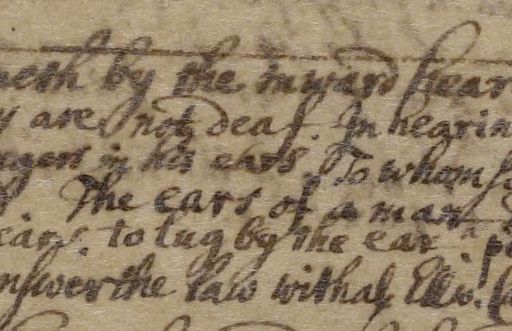 neth by the inward hear
y are not deaf. In hearin
ngers in his ears. To whom so
The ears of a man
ears. to lug by the ear
nswer the law withal,